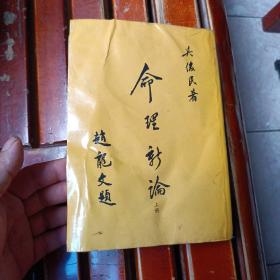 吳俊民著
命理新論
上冊
趙龍文題